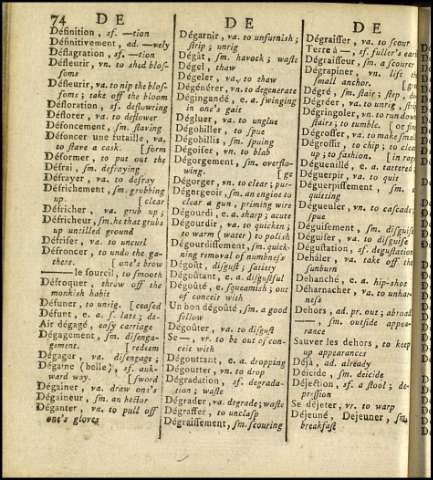 74 D E
Définition, sf. —tion
Définitivement, ad. —vely
Déflagration, sf. —tion
Défleurir, vn. to shed blos-
soms
Défleurir, va. to nip the blos-
soms; take off the bloom
Défloration, sf. deflowering
Déflorer, va. to deflower
Défoncement, sm. staving
Défoncer une futaille, va.
to stave a cask. [form
Déformer, to put out the
Défrai, sm. defraying
Défrayer, va. to defray
Défrichement, sm. grubbing
up. [clear
Défricher, va. grub up;
Défricheur, sm. he that grubs
up untilled ground
Défriser, va. to uncurl
Défroncer, to undo the ga-
thers. [one's brow
— le sourcil, to smooth
Défroquer, throw off the
monkish habit
Défuner, to unrig. [ceased
Défunt, e. a. f. late; de-
Air dégagé, easy carriage
Dégagement, sm. disenga-
gement. [redeem
Dégager, va. disengage;
Dégaine (belle), sf. auk-
ward way. [sword
Dégainer, va. draw one's
Dégaineur, sm. an hector
Déganter, va. to pull off
one's gloves
D E
Dégarnir, va. to unfurnish;
strip; unrig
Dégât, sm. havock; waste
Dégel, thaw
Dégeler, va. to thaw
Dégénérer, vn. to degenerate
Dégingandé, e. a. swinging
in one's gait
Dégluer, va. to unglue
Dégobiller, to spue
Dégobillis, sm. spuing
Dégoiser, vn. to blab
Dégorgement, sm. overflo-
wing. [ge
Dégorger, vn. to clear; pur-
Dégorgeoir, sm. an engine to
clear a gun, priming wire
Dégourdi, e. a. sharp; acute
Dégourdir, va. to quicken;
to warm (water); to polish
Dégourdissement, sm. quick-
ning removal of numbness
Dégoût, disgust; satiety
Dégoûtant, e. a. disgustful
Dégoûté, e. squeamish; out
of conceit with
Un bon dégoûté, sm. a good
fellow
Dégoûter, va. to disgust
Se —, vr. to be out of con-
ceit with
Dégouttant, e. a. dropping
Dégoutter, vn. to drop
Dégradation, sf. degrada-
tion; waste
Dégrader, va. degrade; waste
Dégraffer, to unclasp
Dégraissement, sm. scouring
D E
Dégraisser, va. to scour
Terre à—, sf. fuller's earth
Dégraisseur, sm. a scourer
Dégrapiner, vn. lift the
small anchor.
Dégré, sm. stair; step;
Dégréer, va. to unrig,
Dégringoler, vn. to run down
stairs; to tumble.
Dégrosser, va. to make small
Dégrossir, to chip; to clear
up; to fashion. [in rags
Déguenillé, e. a. tattered;
Déguerpir, va. to quit
Déguerpissement, sm.
quitting
Dégueuler, vn. to cascade;
spue
Déguisement, sm. disguise
Déguiser, va. to disguise
Dégustation, sf. degustation
Dehâler, va. take off the
sunburn
Dehanché, e. a. hip-shot
Déharnacher, va. to unhar-
ness
Dehors, ad. pr. out; abroad
—, sm. outside appea-
rance
Sauver les dehors, to keep
up appearances
Déjà, ad. already
Déicide, sm. deicide
Déjection, sf. a stool; de-
pression
Se déjeter, vr. to warp
Déjeuné, Dejeuner, sm.
breakfast